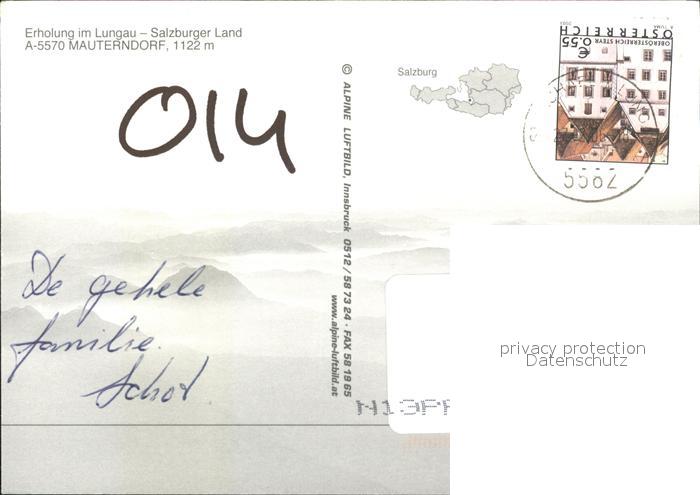 Erholung im Lungau – Salzburger Land
A-5570 MAUTERNDORF, 1122 m
014
Salzburg
© ALPINE LUFTBILD, Innsbruck 0512/58 73 24 · FAX 58 19 65
www.alpine-luftbild.at
A. TUMA 2003
ÖSTERREICH
€ 0,55
OBERÖSTERREICH STEYR
5582
De gehele
familie.
Schot
privacy protection
Datenschutz